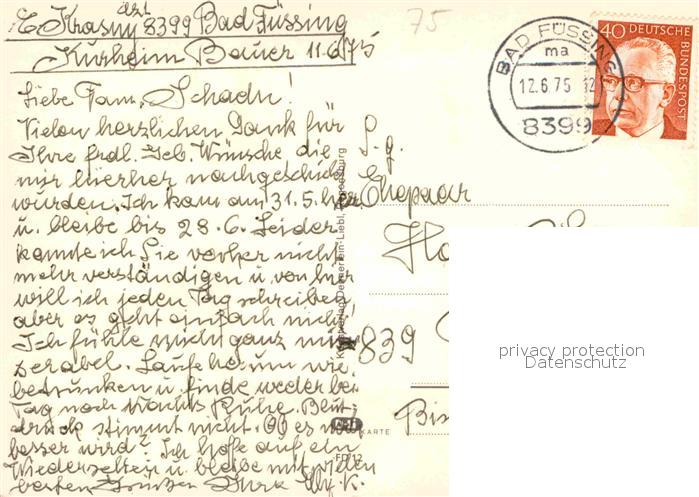 E. Krasny dzt 8399 Bad Füssing
Kurheim Bauer 11.6.75
75
Liebe Fam. Schadn!
Vielen herzlichen Dank für
Ihre frdl. Geb. Wünsche die
mir hierher nachgeschickt
wurden. Ich kam am 31.5. her
u. bleibe bis 28.6. Leider
konnte ich Sie vorher nicht
mehr verständigen u. von hier
will ich jeden Tag schreiben
aber es geht einfach nicht!
Ich fühle mich ganz mi-
serabel. Laufe herum wie
betrunken u. finde weder bei
Tag noch Nachts Ruhe. Blut-
druck stimmt nicht. Ob es noch
besser wird? Ich hoffe auf ein
Wiedersehen u. bleibe mit vielen
besten Grüßen Ihre K.
BAD FÜSSING
ma
12.6.75 12
8399
40 DEUTSCHE
BUNDESPOST
S. g.
Ehepaar
839
KARTE
privacy protection
Datenschutz